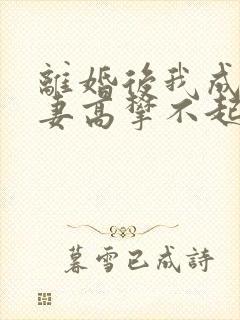 離婚後我成
妻高攀不起
暮雪已成詩